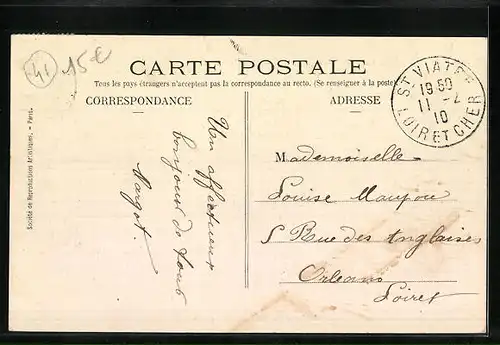 41
15€
CARTE POSTALE
Tous les pays étrangers n'acceptent pas la correspondance au recto. (Se renseigner à la poste)
CORRESPONDANCE
ADRESSE
ST VIATRE
19 50
11 - 2
10
LOIR ET CHER
Société de Reproductions Artistiques. — Paris.
Un affectueux
bonjour de tous
Margot.
Mademoiselle
Louise Maupou
5 Rue des Anglaises
Orléans
Loiret